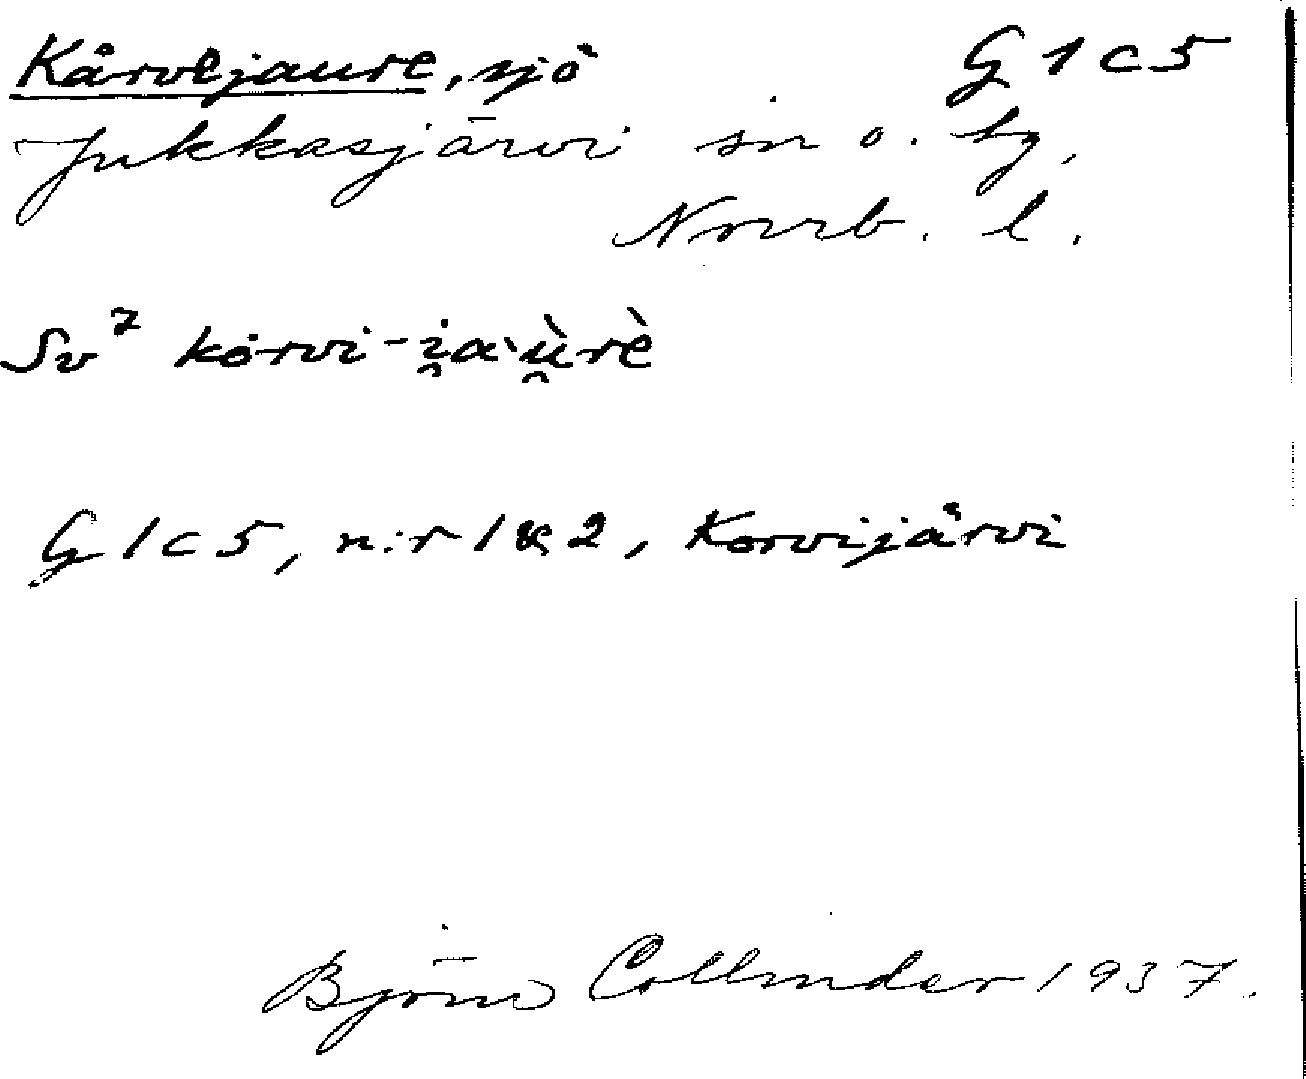 Kårvejaure, sjö G 1 c 5
Jukkasjärvi sn o. tg,
Norrb. l.
Sv⁷ kȯrvi-i̯a`ù̯rè
G 1 c 5, n:r 1 & 2, Korvijärvi
Björn Collinder 1937.